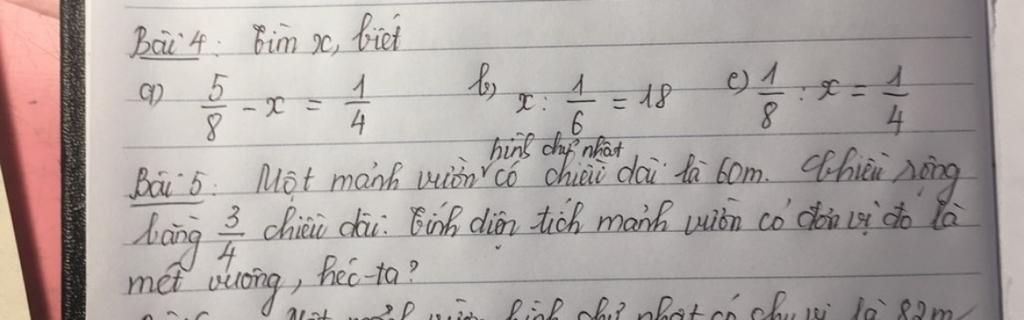 Bài 4: Tìm x, biết
a) 5/8 - x = 1/4 b) x : 1/6 = 18 c) 1/8 : x = 1/4
hình chữ nhật
Bài 5: Một mảnh vườn có chiều dài là 60m. Chiều rộng
bằng 3/4 chiều dài. Tính diện tích mảnh vườn có đơn vị đo là
mét vuông, héc-ta?
Một mảnh vườn hình chữ nhật có chu vi là 82m